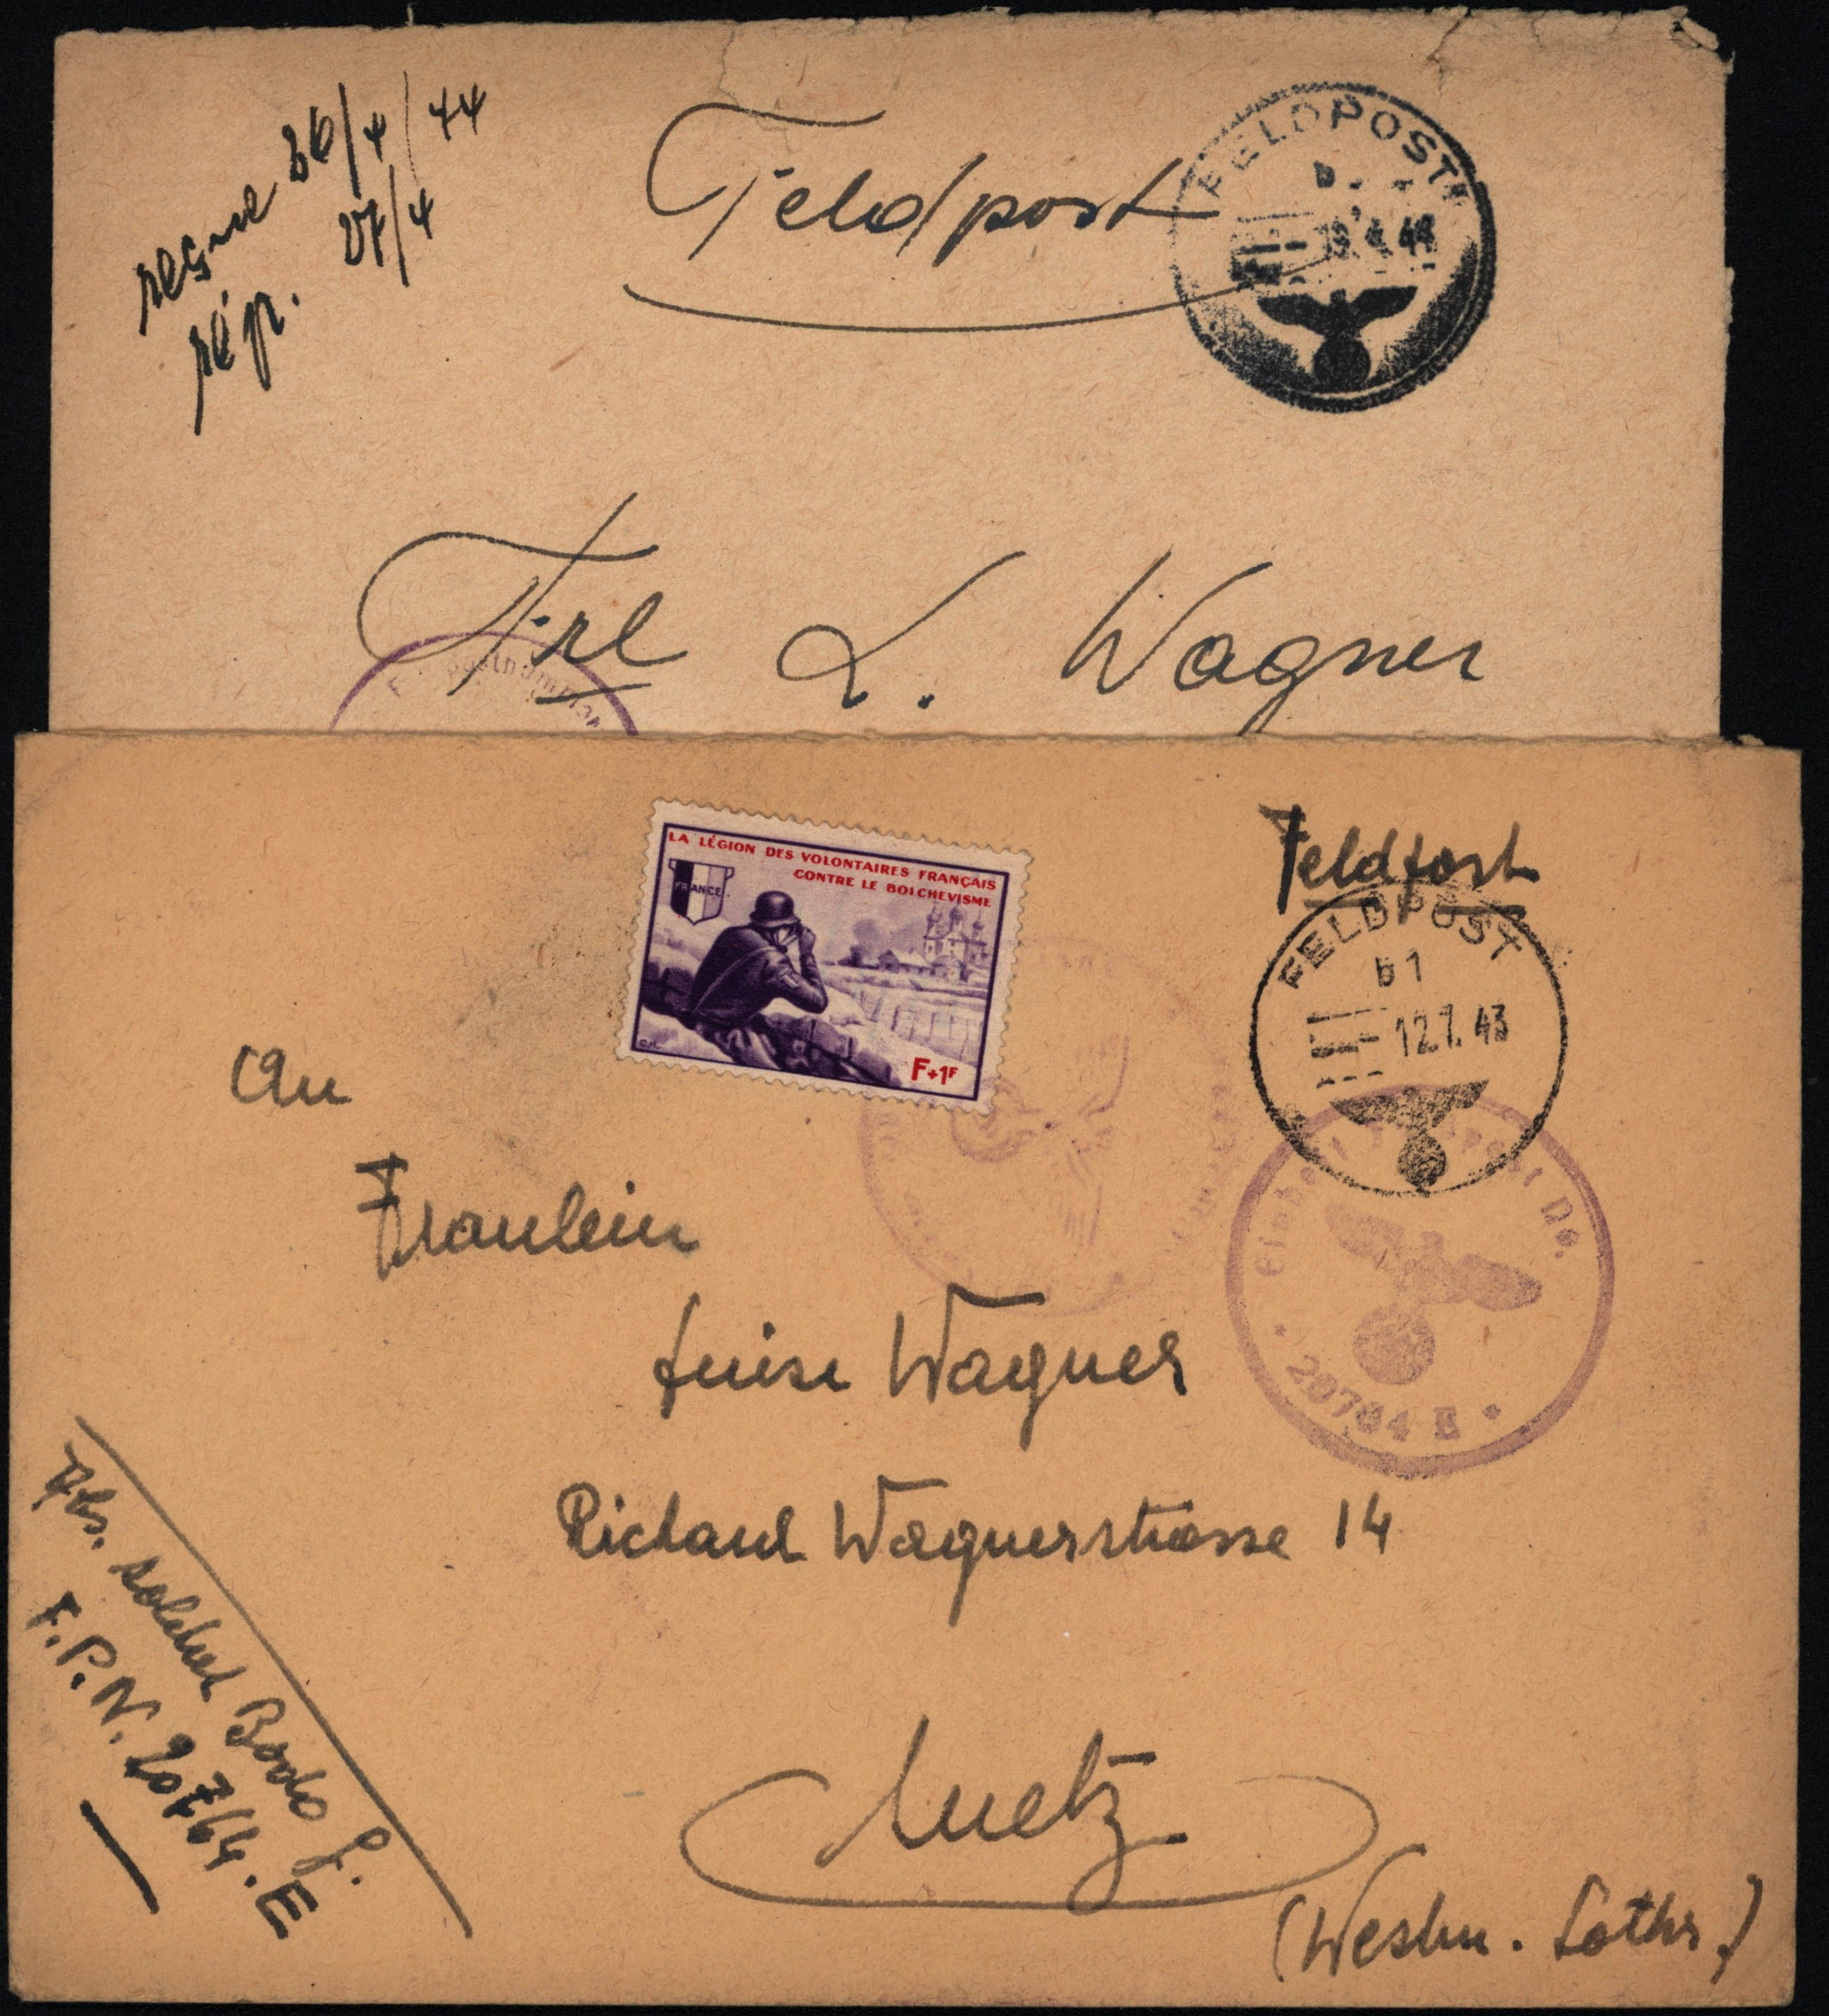 reçue 26/4/44
rép. 27/4
Feldpost
FELDPOST
b
Frl L. Wagner
LA LÉGION DES VOLONTAIRES FRANÇAIS
CONTRE LE BOLCHEVISME
FRANCE
F+1F
Feldpost
FELDPOST
b1
12.7.43
Einheit Feldpost No.
20764 E
An
Fraulein
Luise Wagner
Richard Wagnerstrasse 14
Metz
(Westm. Lothr.)
Abs. soldat
F.P.N. 20764.E